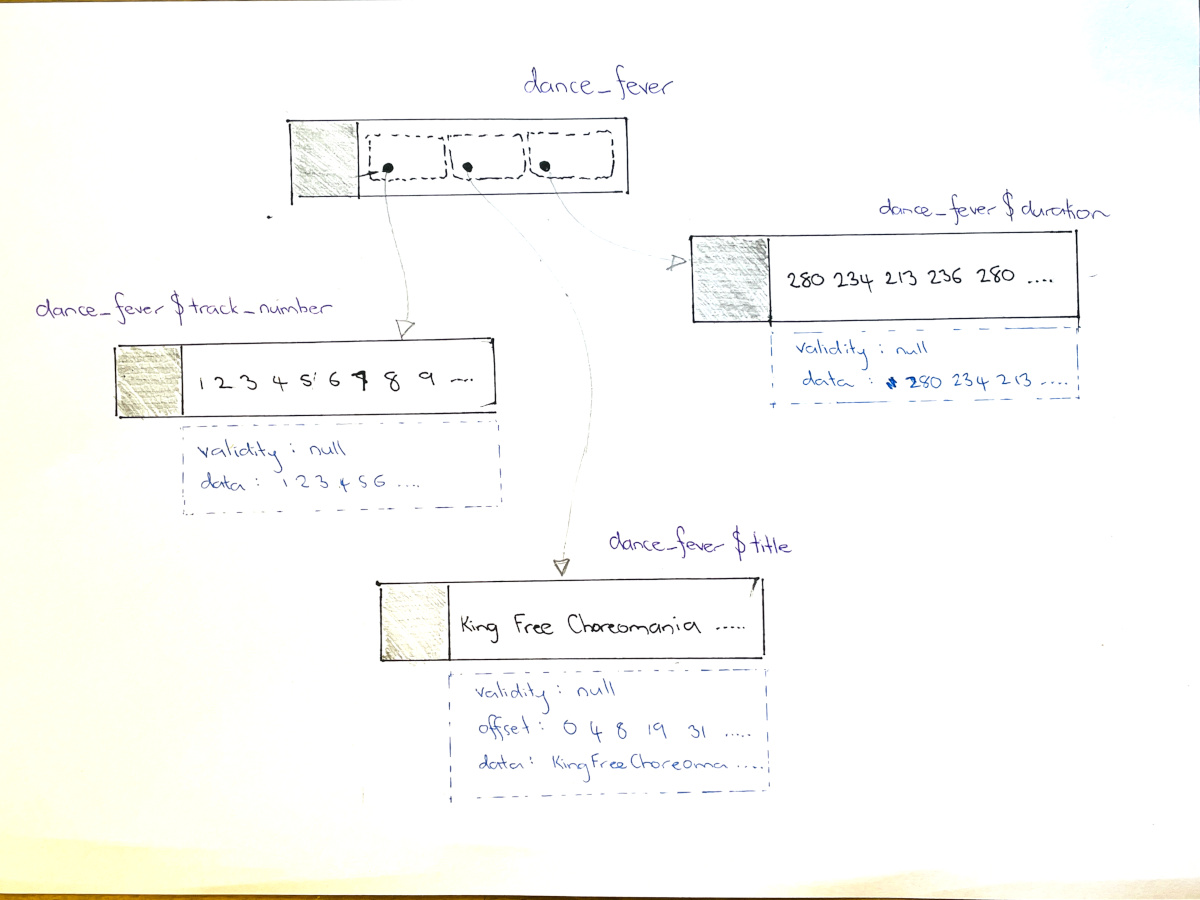 dance_fever
dance_fever $ duration
280 234 213 236 280 ....
validity : null
data : 280 234 213 ....
dance_fever $ track_number
1 2 3 4 5 6 7 8 9 ....
validity : null
data : 1 2 3 4 5 6 ....
dance_fever $ title
King Free Choreomania .....
validity : null
offset : 0 4 8 19 31 .....
data : KingFreeChoreoma ....